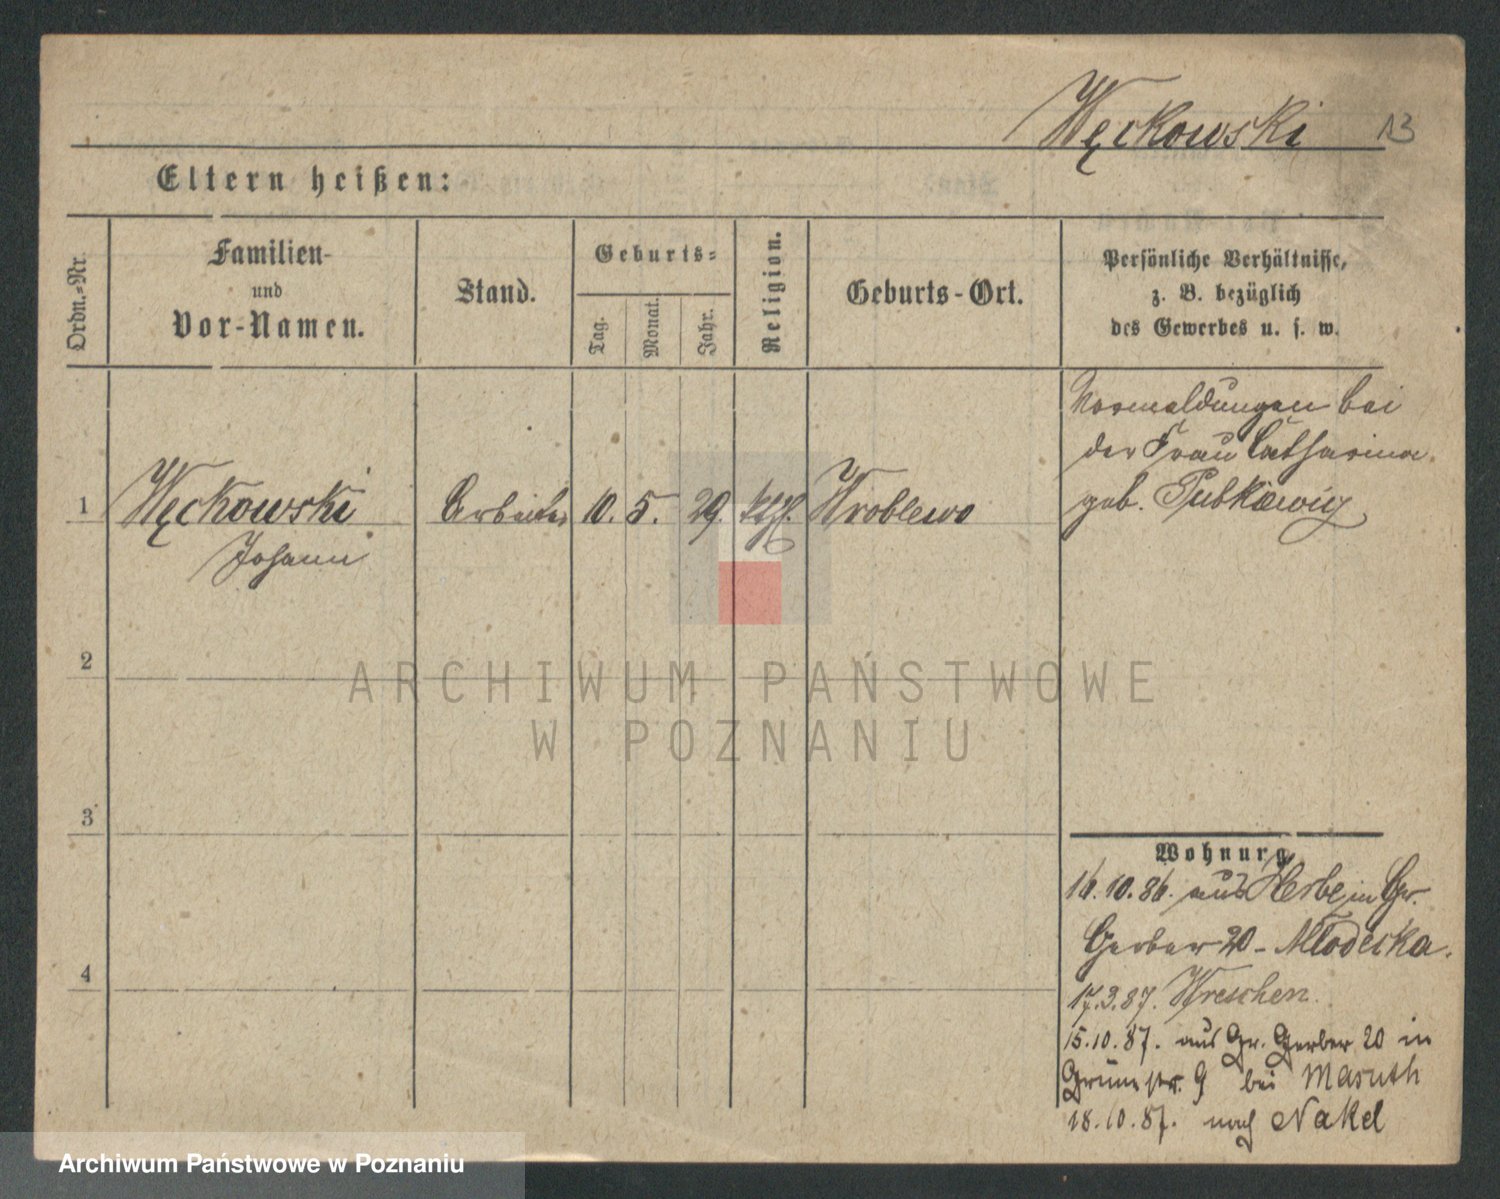 Węckowski 13
Eltern heißen:
Ordn.=Nr.
Familien-
und
Vor-Namen.
Stand.
Geburts=
Tag.
Monat.
Jahr.
Religion.
Geburts-Ort.
Persönliche Verhältnisse,
z. B. bezüglich
des Gewerbes u. s. w.
1
Węckowski
Johann
Arbeiter
10. 5. 29.
kthl.
Wroblewo
Vormeldungen bei
der Frau Catharina
geb.
2
3
4
Wohnung
16.10.86. aus Herbe in Gr.
Gerber 20 - Młodecka.
17.3.87. Wreschen.
15.10.87. aus Gr. Gerber 20 in
Grünestr. 9 bei Masuth
18.10.87. nach Nakel
ARCHIWUM PAŃSTWOWE
W POZNANIU
Archiwum Państwowe w Poznaniu